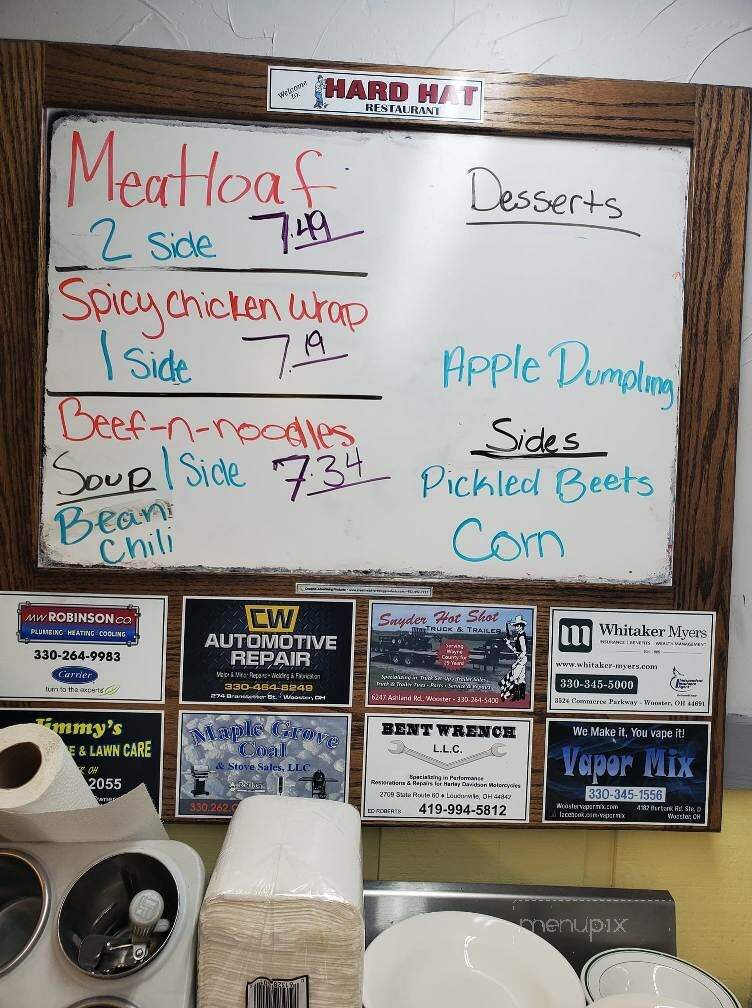 Welcome to:
HARD HAT
RESTAURANT
Meatloaf
2 Side 7.49
Spicy chicken wrap
1 Side 7.19
Beef-n-noodles
1 Side 7.34
Soup
Bean
Chili
Desserts
Apple Dumpling
Sides
Pickled Beets
Corn
MW ROBINSON CO.
PLUMBING HEATING COOLING
330-264-9983
Carrier
turn to the experts
CW
AUTOMOTIVE
REPAIR
Major & Minor Repairs • Welding & Fabrication
330-464-8249
274 Branstetter St. • Wooster, OH
Snyder Hot Shot
TRUCK & TRAILER
Serving
Wayne
County for
25 Years
Specializing in Truck Set-Ups • Trailer Sales
Truck & Trailer Tires • Parts • Service & Repairs
6247 Ashland Rd., Wooster • 330-264-5400
Whitaker Myers
INSURANCE | BENEFITS WEALTH MANAGEMENT
www.whitaker-myers.com
330-345-5000
3524 Commerce Parkway · Wooster, OH 44691
Jimmy's
E & LAWN CARE
OH
2055
Maple Grove
Coal
& Stove Sales, LLC
330.262.
BENT WRENCH
L.L.C.
Specializing in Performance
Restorations & Repairs for Harley Davidson Motorcycles
2709 State Route 60 • Loudonville, OH 44842
ED ROBERTS 419-994-5812
We Make it, You vape it!
Vapor Mix
330-345-1556
Woostervapormix.com
facebook.com/vapormix
4182 Burbank Rd. Ste. D
Wooster, OH
menupix